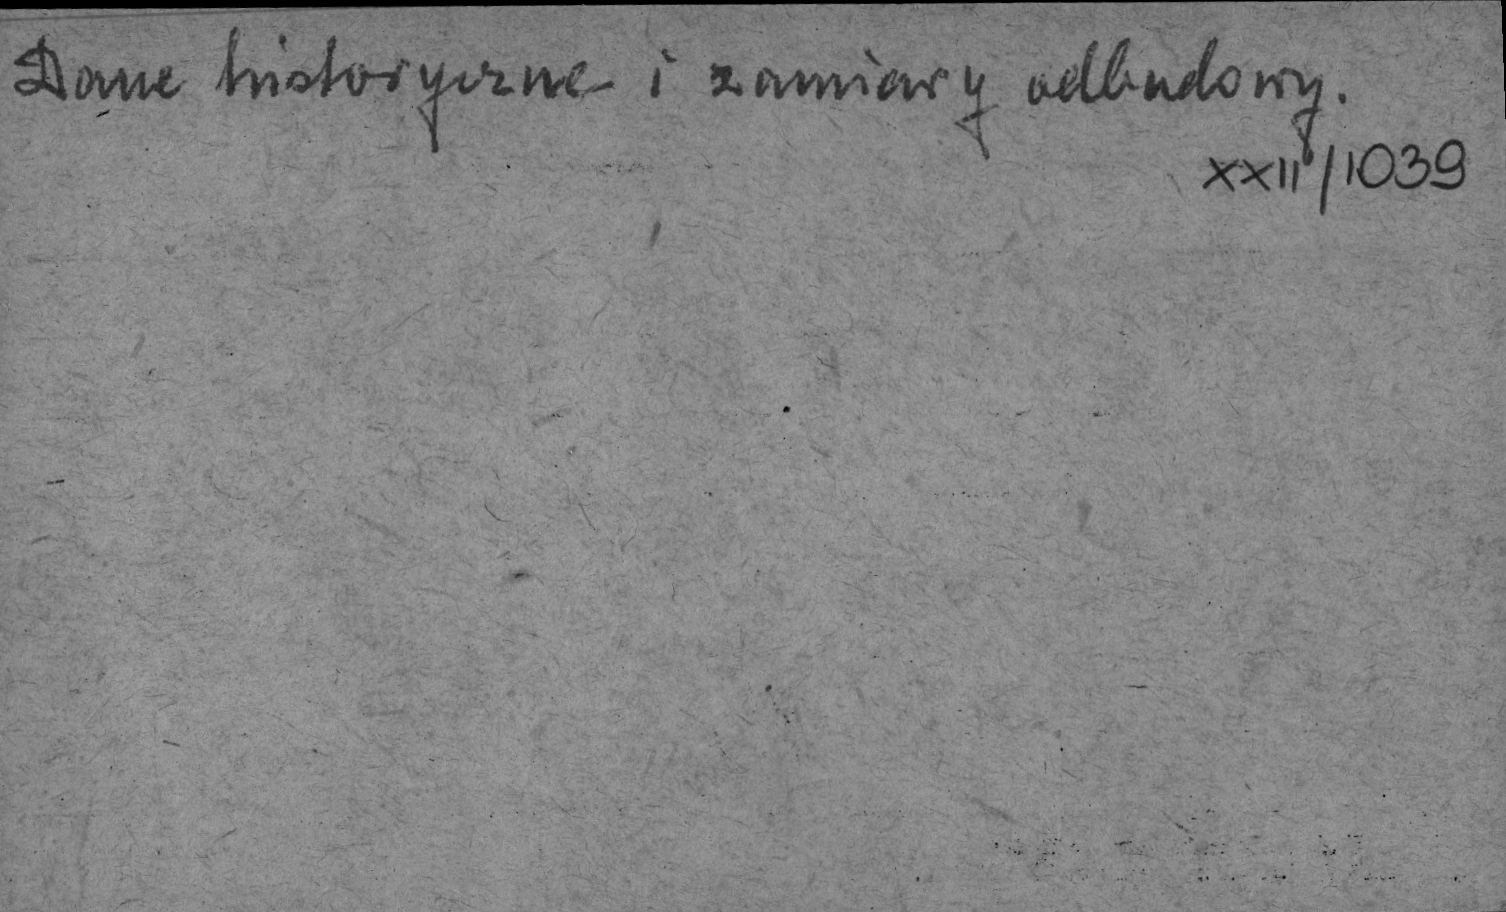 Dane historyczne i zamiary odbudowy.
XXII/1039